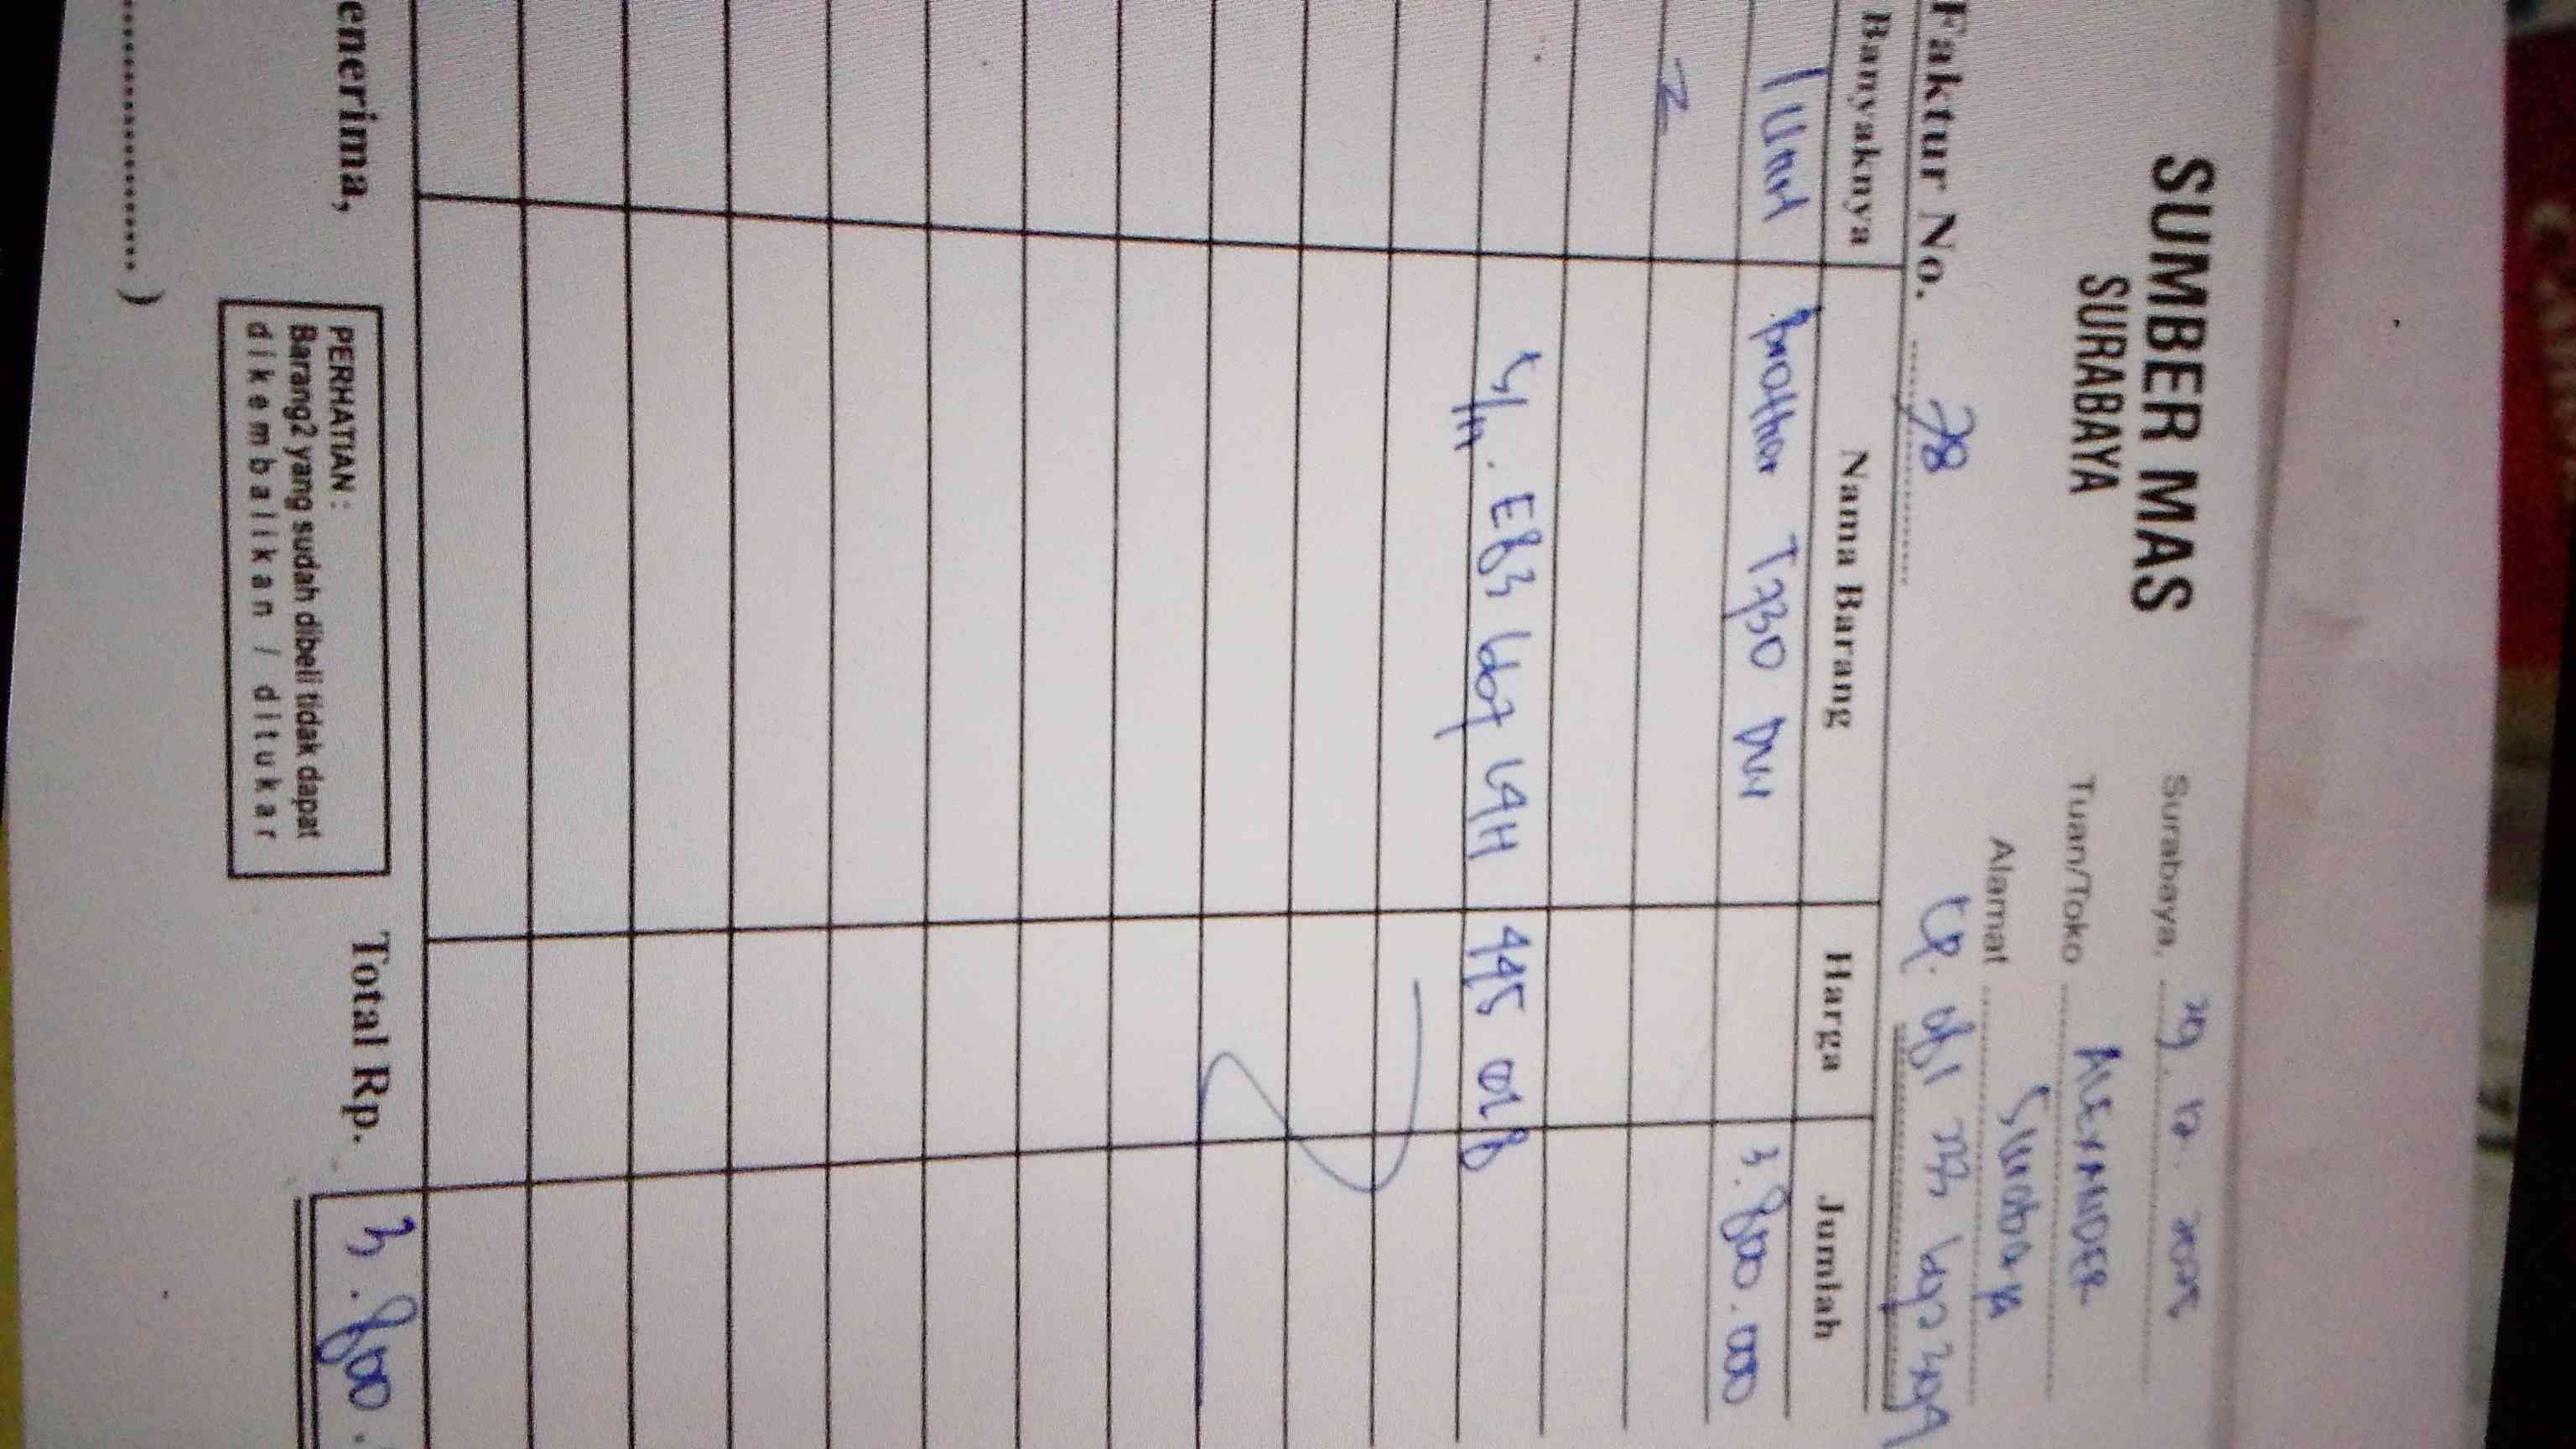 SUMBER MAS
SURABAYA
Surabaya, 29. 12. 2025
Tuan/Toko ALEXANDER
Alamat Surabaya
Faktur No. 78
Banyaknya Nama Barang Harga Jumlah
1 Unit brother T730 DW 3.800.000
S/N. E83 667 L4H 445 018
enerima,
PERHATIAN :
Barang2 yang sudah dibeli tidak dapat
dikembalikan / ditukar
Total Rp. 3.800.